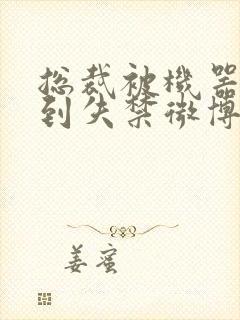 总裁被機器
到失禁微博
姜蜜